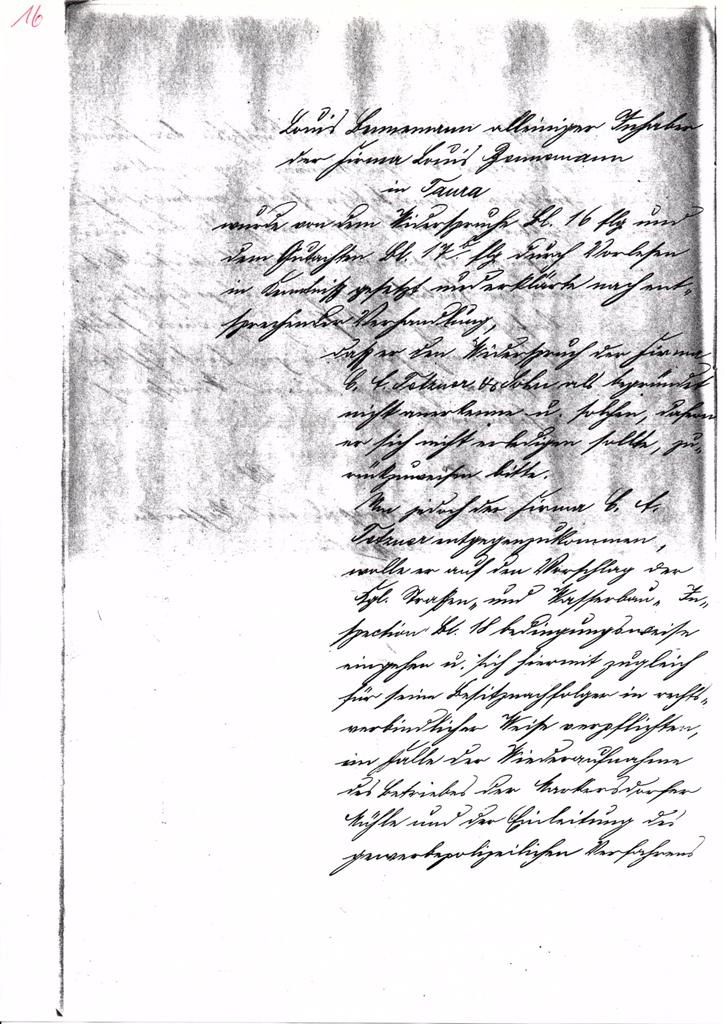 16
Louis Bennemann alleiniger Inhaber
der Firma Louis Bennemann
in Taura
wurde von dem Widerspruche Bl. 16 flg und
dem Gutachten Bl. 17 flg durch Vorlesen
in Kenntniß gesetzt und erklärte nach ent-
sprechender Verhandlung,
daß er den Widerspruch der Firma
C. F. & Sohn als begründet
nicht anerkenne u. solchen, dafern
er sich nicht erledigen sollte, zu-
rückzuweisen bitte.
Um jedoch der Firma C. F.
entgegenzukommen,
wolle er auf den Vorschlag der
Kgl. Straßen- und Wasserbau-In-
spection Bl. 18 bedingungsweise
eingehen u. sich hiermit zugleich
für seine Besitznachfolger in rechts-
verbindlicher Weise verpflichten,
im Falle der Wiederaufnahme
des Betriebes der Markersdorfer
Mühle und der Einleitung des
gewerbepolizeilichen Verfahrens